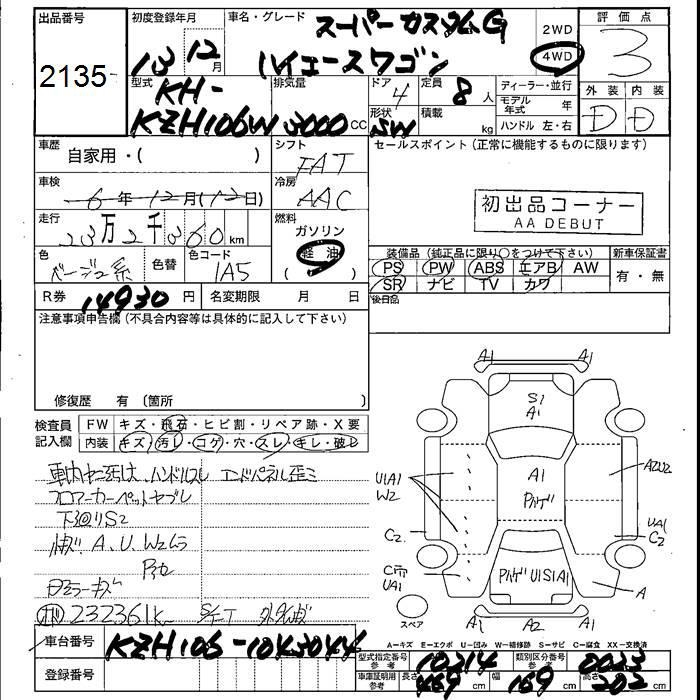 出品番号
2135
初度登録年月
13年12月
車名・グレード
スーパーカスタムG
ハイエースワゴン
2WD
4WD
評価点
3
型式
KH-
KZH106W
排気量
3000cc
ドア
4
形状
SW
定員
8人
積載
kg
ディーラー・並行
モデル年式 年
ハンドル 左・右
外装 内装
D D
車歴
自家用・( )
シフト
FAT
セールスポイント(正常に機能するものに限ります)
車検
6年12月(12日)
冷房
AAC
初出品コーナー
AA DEBUT
走行
23万2千360km
燃料
ガソリン
軽油
( )
色
ベージュ系
色替
色コード
1A5
装備品(純正品に限り○をつけて下さい)
新車保証書
PS PW ABS エアB AW
SR ナビ TV カワ
有・無
R券
14930円
名変期限 月 日
後日品
注意事項申告欄(不具合内容等は具体的に記入して下さい)
修復歴 有〔箇所 〕
検査員記入欄
FW キズ・飛石・ヒビ割・リペア跡・X要
内装 キズ・汚レ・コゲ・穴・スレ・キレ・破レ
ハンドルスレ エンドパネル歪ミ
フロアーカーペットヤブレ
下廻りS2
A、U、W2ムラ
232361K
A1 A1
S1
A1
U1A1
W2
A1
AZU2
C2
UA1
C2
UA1
U1S1A1
A
スペア
A1 A2 A1
A-キズ E-エクボ U-凹み W-補修跡 S-サビ C-腐食 XX-交換済
車台番号
KZH106-1043044
登録番号
型式指定番号 参考
10314
類別区分番号 参考
0023
車庫証明用 参考
長さ 469cm
幅 169cm
高さ 202cm